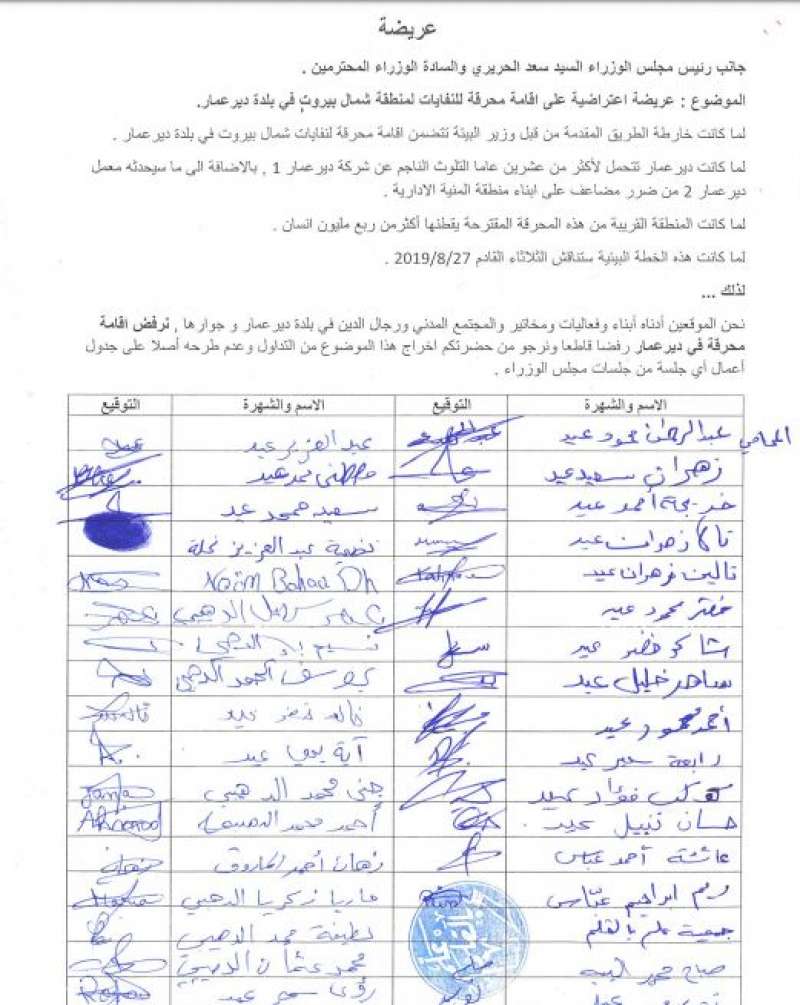 عريضة
جانب رئيس مجلس الوزراء السيد سعد الحريري والسادة الوزراء المحترمين .
الموضوع : عريضة اعتراضية على اقامة محرقة للنفايات لمنطقة شمال بيروت في بلدة ديرعمار.
لما كانت خارطة الطريق المقدمة من قبل وزير البيئة تتضمن اقامة محرقة لنفايات شمال بيروت في بلدة ديرعمار .
لما كانت ديرعمار تتحمل لأكثر من عشرين عاما التلوث الناجم عن شركة ديرعمار 1 , بالاضافة الى ما سيحدثه معمل
ديرعمار 2 من ضرر مضاعف على ابناء منطقة المنية الادارية .
لما كانت المنطقة القريبة من هذه المحرقة المقترحة يقطنها أكثرمن ربع مليون انسان .
لما كانت هذه الخطة البيئية ستناقش الثلاثاء القادم 2019/8/27 .
لذلك ...
نحن الموقعين أدناه أبناء وفعاليات ومخاتير والمجتمع المدني ورجال الدين في بلدة ديرعمار و جوارها , نرفض اقامة
محرقة في ديرعمار رفضا قاطعا ونرجو من حضرتكم اخراج هذا الموضوع من التداول وعدم طرحه أصلا على جدول
أعمال أي جلسة من جلسات مجلس الوزراء .
الاسم والشهرة التوقيع الاسم والشهرة التوقيع
المحامي عبد الرحمن محمود عيد عبد العزيز عيد
زهران سعيد عيد مصطفى محمد عيد
خديجة أحمد عيد سعيد محمد عيد
زهران عيد نظمية عبد العزيز نحلة
تالين زهران عيد Naim Bahaa Dh
خضر محمود عيد الدهيبي
خضر عيد نسيم الدهيبي
ساهر خليل عيد يوسف الدهيبي
أحمد محمود عيد خالد خضر عيد
رابعة سمير عيد آية يحيا عيد
كوكب فؤاد عيد جنى محمد الدهيبي Jana
حسان نبيل عيد أحمد محمد الدهيبي Ahmad
عائشة أحمد عباس زهان أحمد
ريم ابراهيم عباس ماريا زكريا الدهيبي Maria
جمعية علّم بالقلم لطيفة محمد الدهيبي
صباح محمد محمد عثمان الدهيبي
رؤى سمير عيد